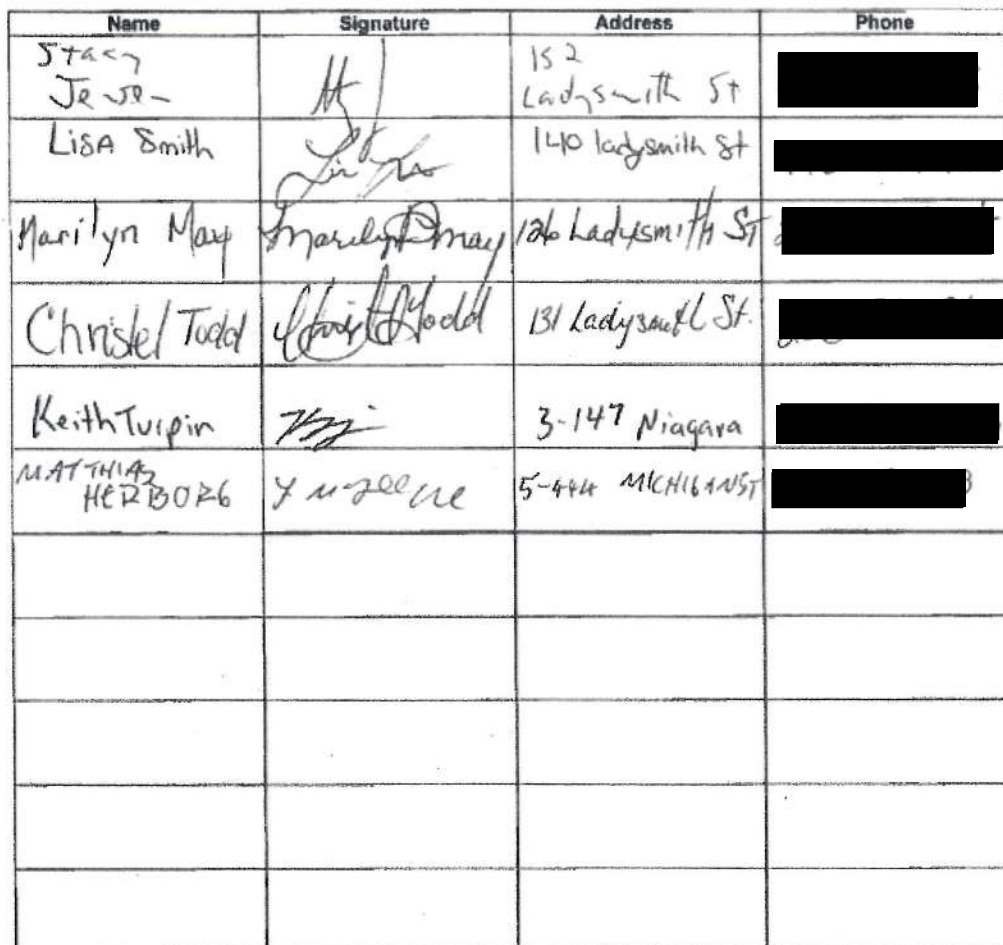 Name Signature Address Phone
Stacy 152
Ladysmith St
Lisa Smith 140 ladysmith St
Marilyn May Marilyn P May 126 Ladysmith ST
Christel Todd Todd 131 Ladysmith St.
Keith Turpin 3-147 Niagara
MATTHIAS
HERBORG 5-444 MICHIGAN ST